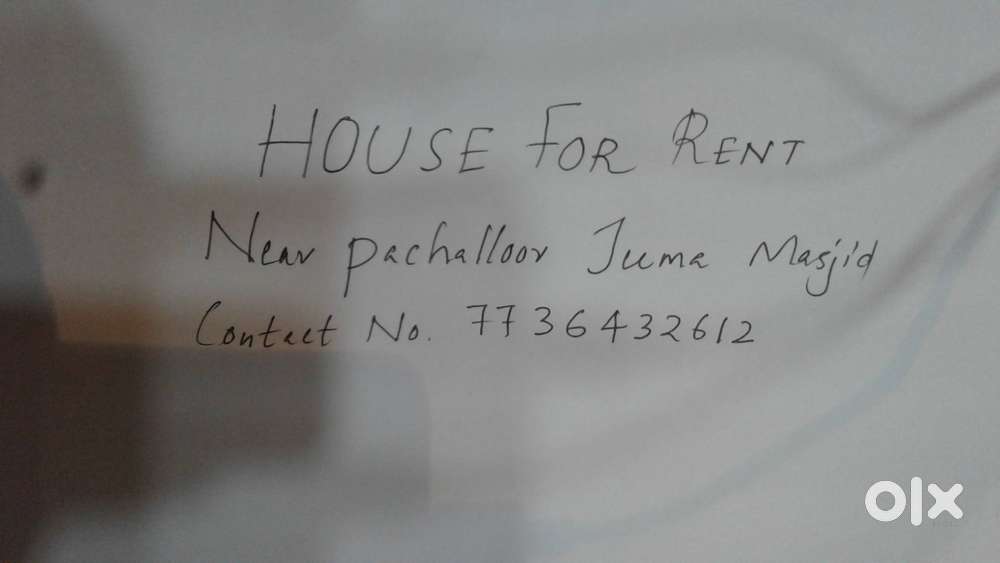 HOUSE FOR RENT
Near pachalloor Juma Masjid
Contact No. 7736432612
olx